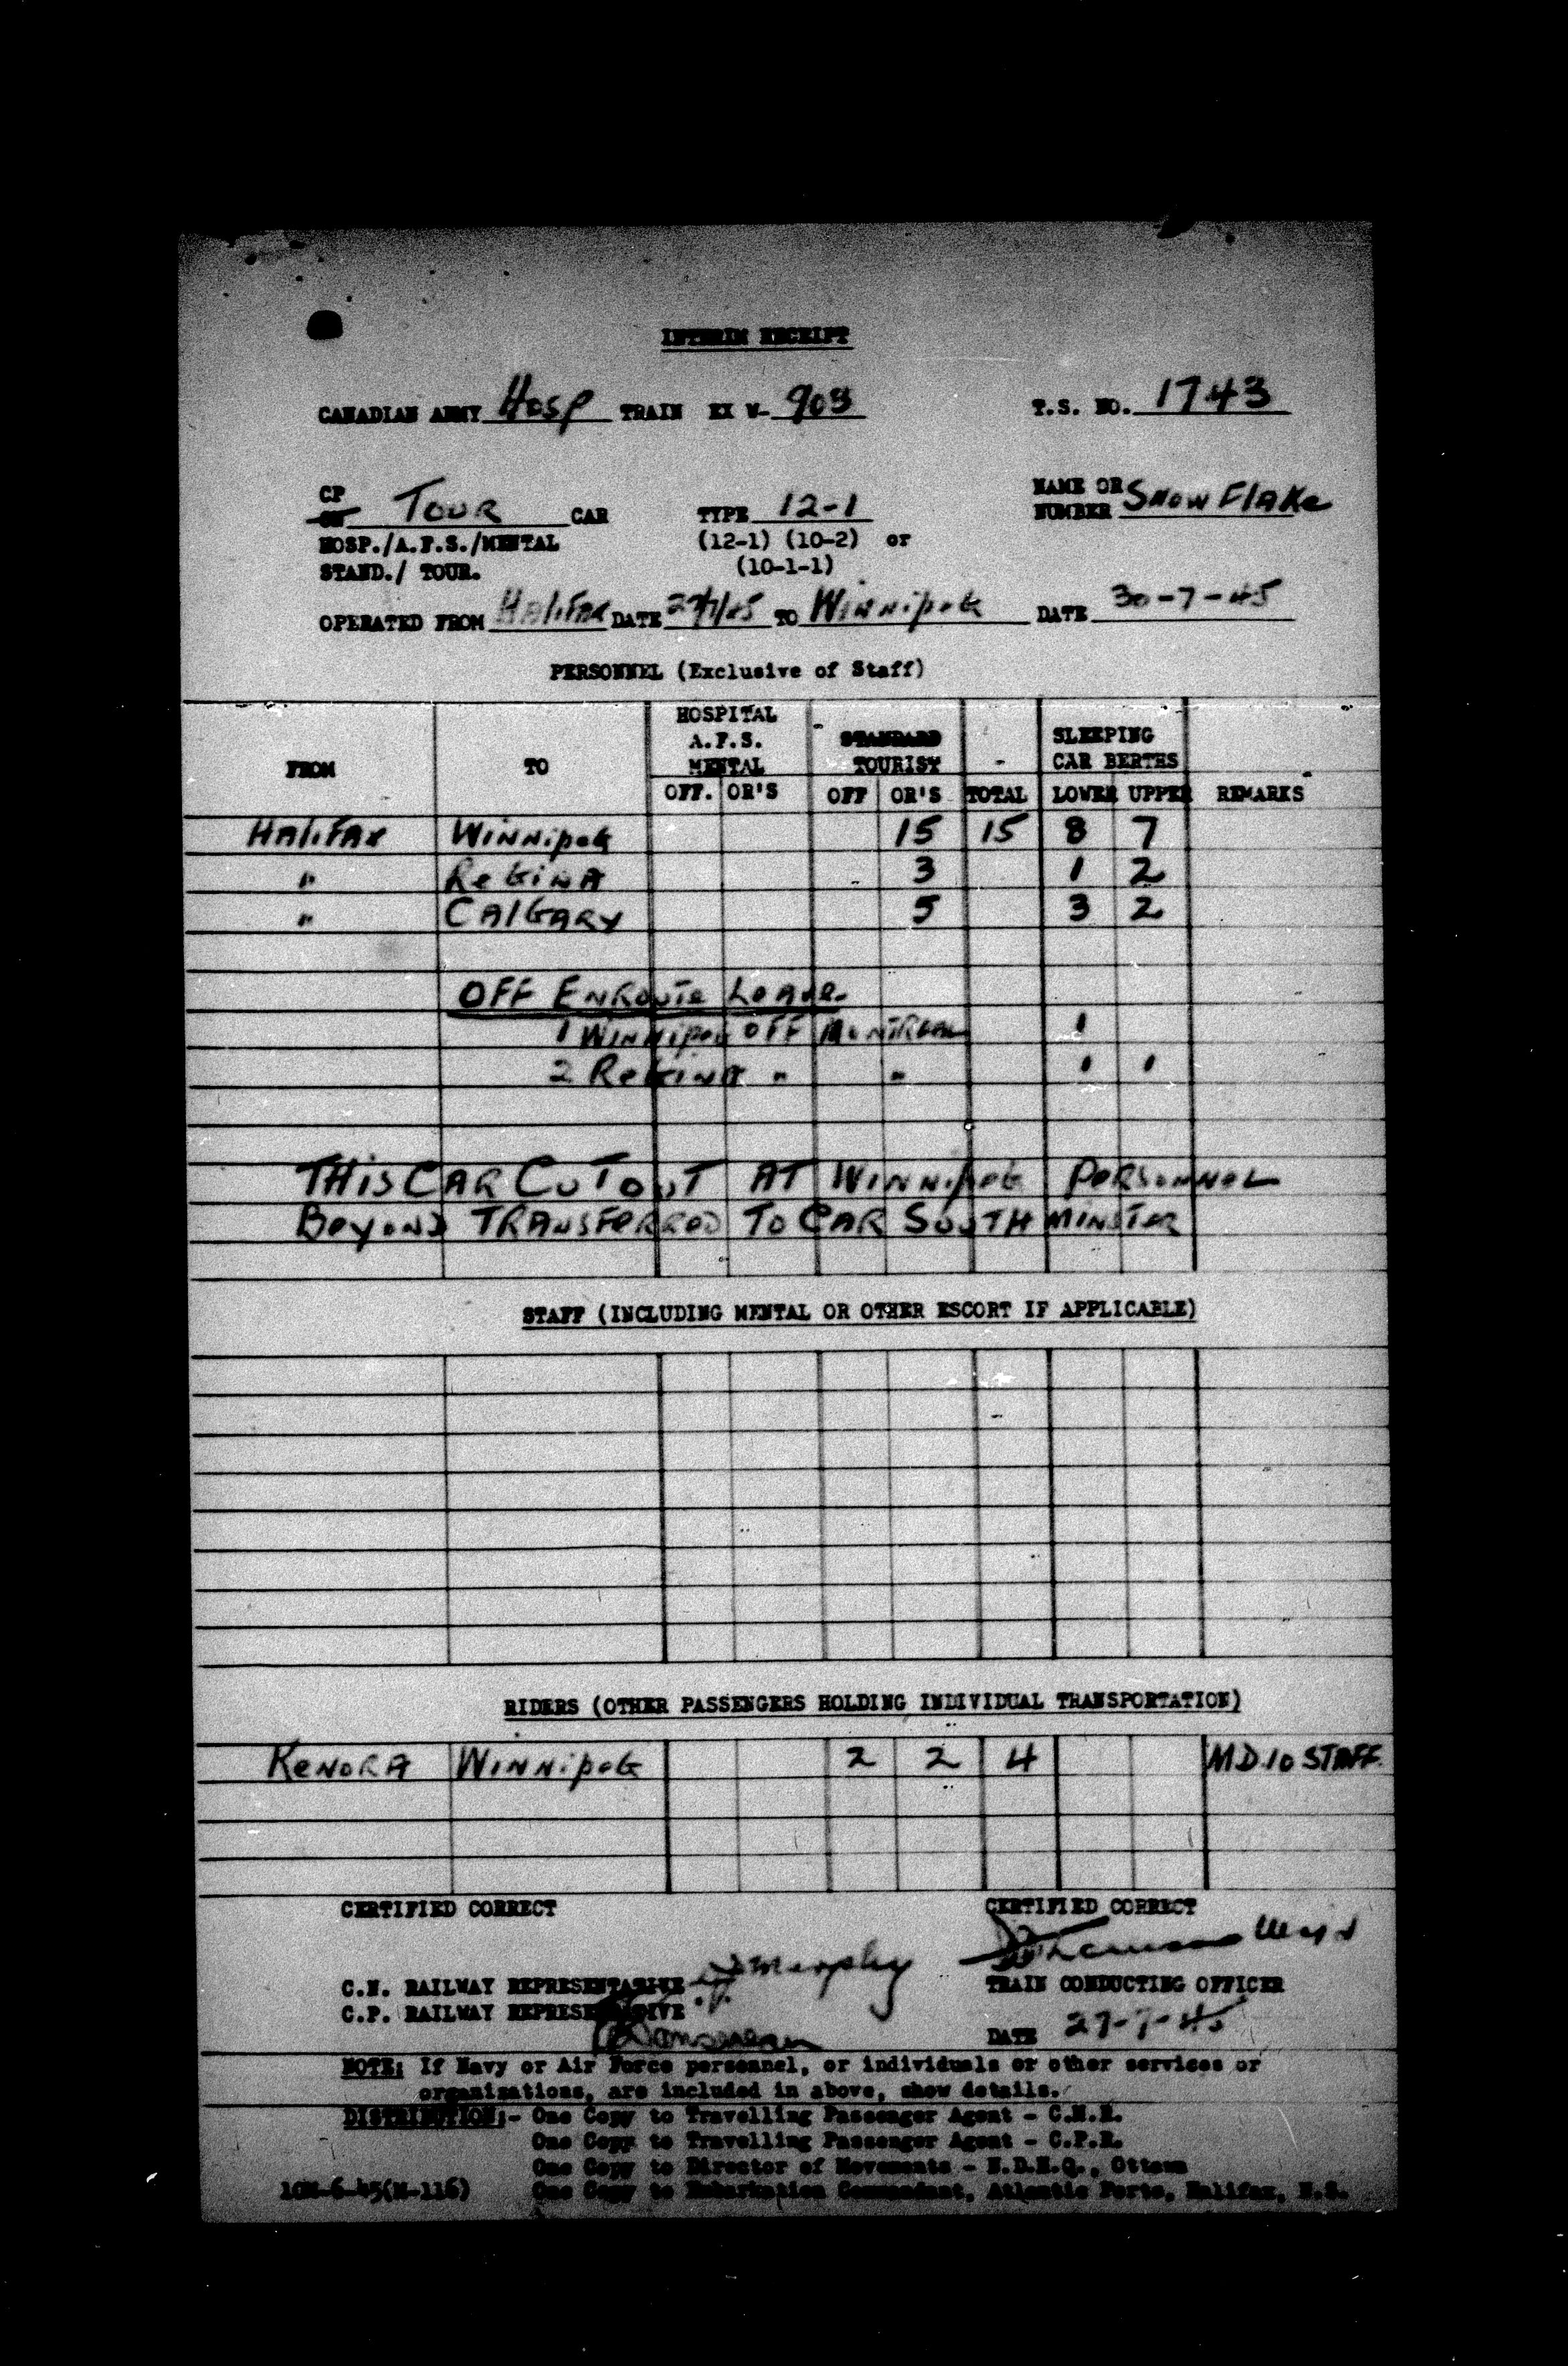 INTERIM RECEIPT
CANADIAN ARMY Hosp TRAIN EX W- 903 T.S. NO. 1743
CP CN TOUR CAR TYPE 12-1 NAME OR NUMBER SNOW FLAKE
HOSP./A.F.S./MENTAL (12-1) (10-2) or
STAND./ TOUR. (10-1-1)
OPERATED FROM HALIFAX DATE TO WINNIPEG DATE 30-7-45
PERSONNEL (Exclusive of Staff)
FROM TO HOSPITAL A.F.S. MENTAL STANDARD TOURIST SLEEPING CAR BERTHS
OFF. OR'S OFF OR'S TOTAL LOWER UPPER REMARKS
HALIFAX WINNIPEG 15 15 8 7
" REGINA 3 1 2
" CALGARY 5 3 2
OFF ENROUTE LEAVE
1 WINNIPEG OFF MONTREAL 1
2 REGINA " " 1 1
THIS CAR CUT OUT AT WINNIPEG PERSONNEL
BEYOND TRANSFERRED TO CAR SOUTHMINSTER
STAFF (INCLUDING MENTAL OR OTHER ESCORT IF APPLICABLE)
RIDERS (OTHER PASSENGERS HOLDING INDIVIDUAL TRANSPORTATION)
KENORA WINNIPEG 2 2 4 M.D.10 STAFF
CERTIFIED CORRECT CERTIFIED CORRECT
C.N. RAILWAY REPRESENTATIVE Murphy TRAIN CONDUCTING OFFICER
C.P. RAILWAY REPRESENTATIVE
DATE 27-7-45
NOTE: If Navy or Air Force personnel, or individuals or other services or
organizations, are included in above, show details.
DISTRIBUTION:- One Copy to Travelling Passenger Agent - C.N.R.
One Copy to Travelling Passenger Agent - C.P.R.
One Copy to Director of Movements - N.D.H.Q., Ottawa
10M-6-45(M-116) One Copy to Embarkation Commandant, Atlantic Ports, Halifax, N.S.